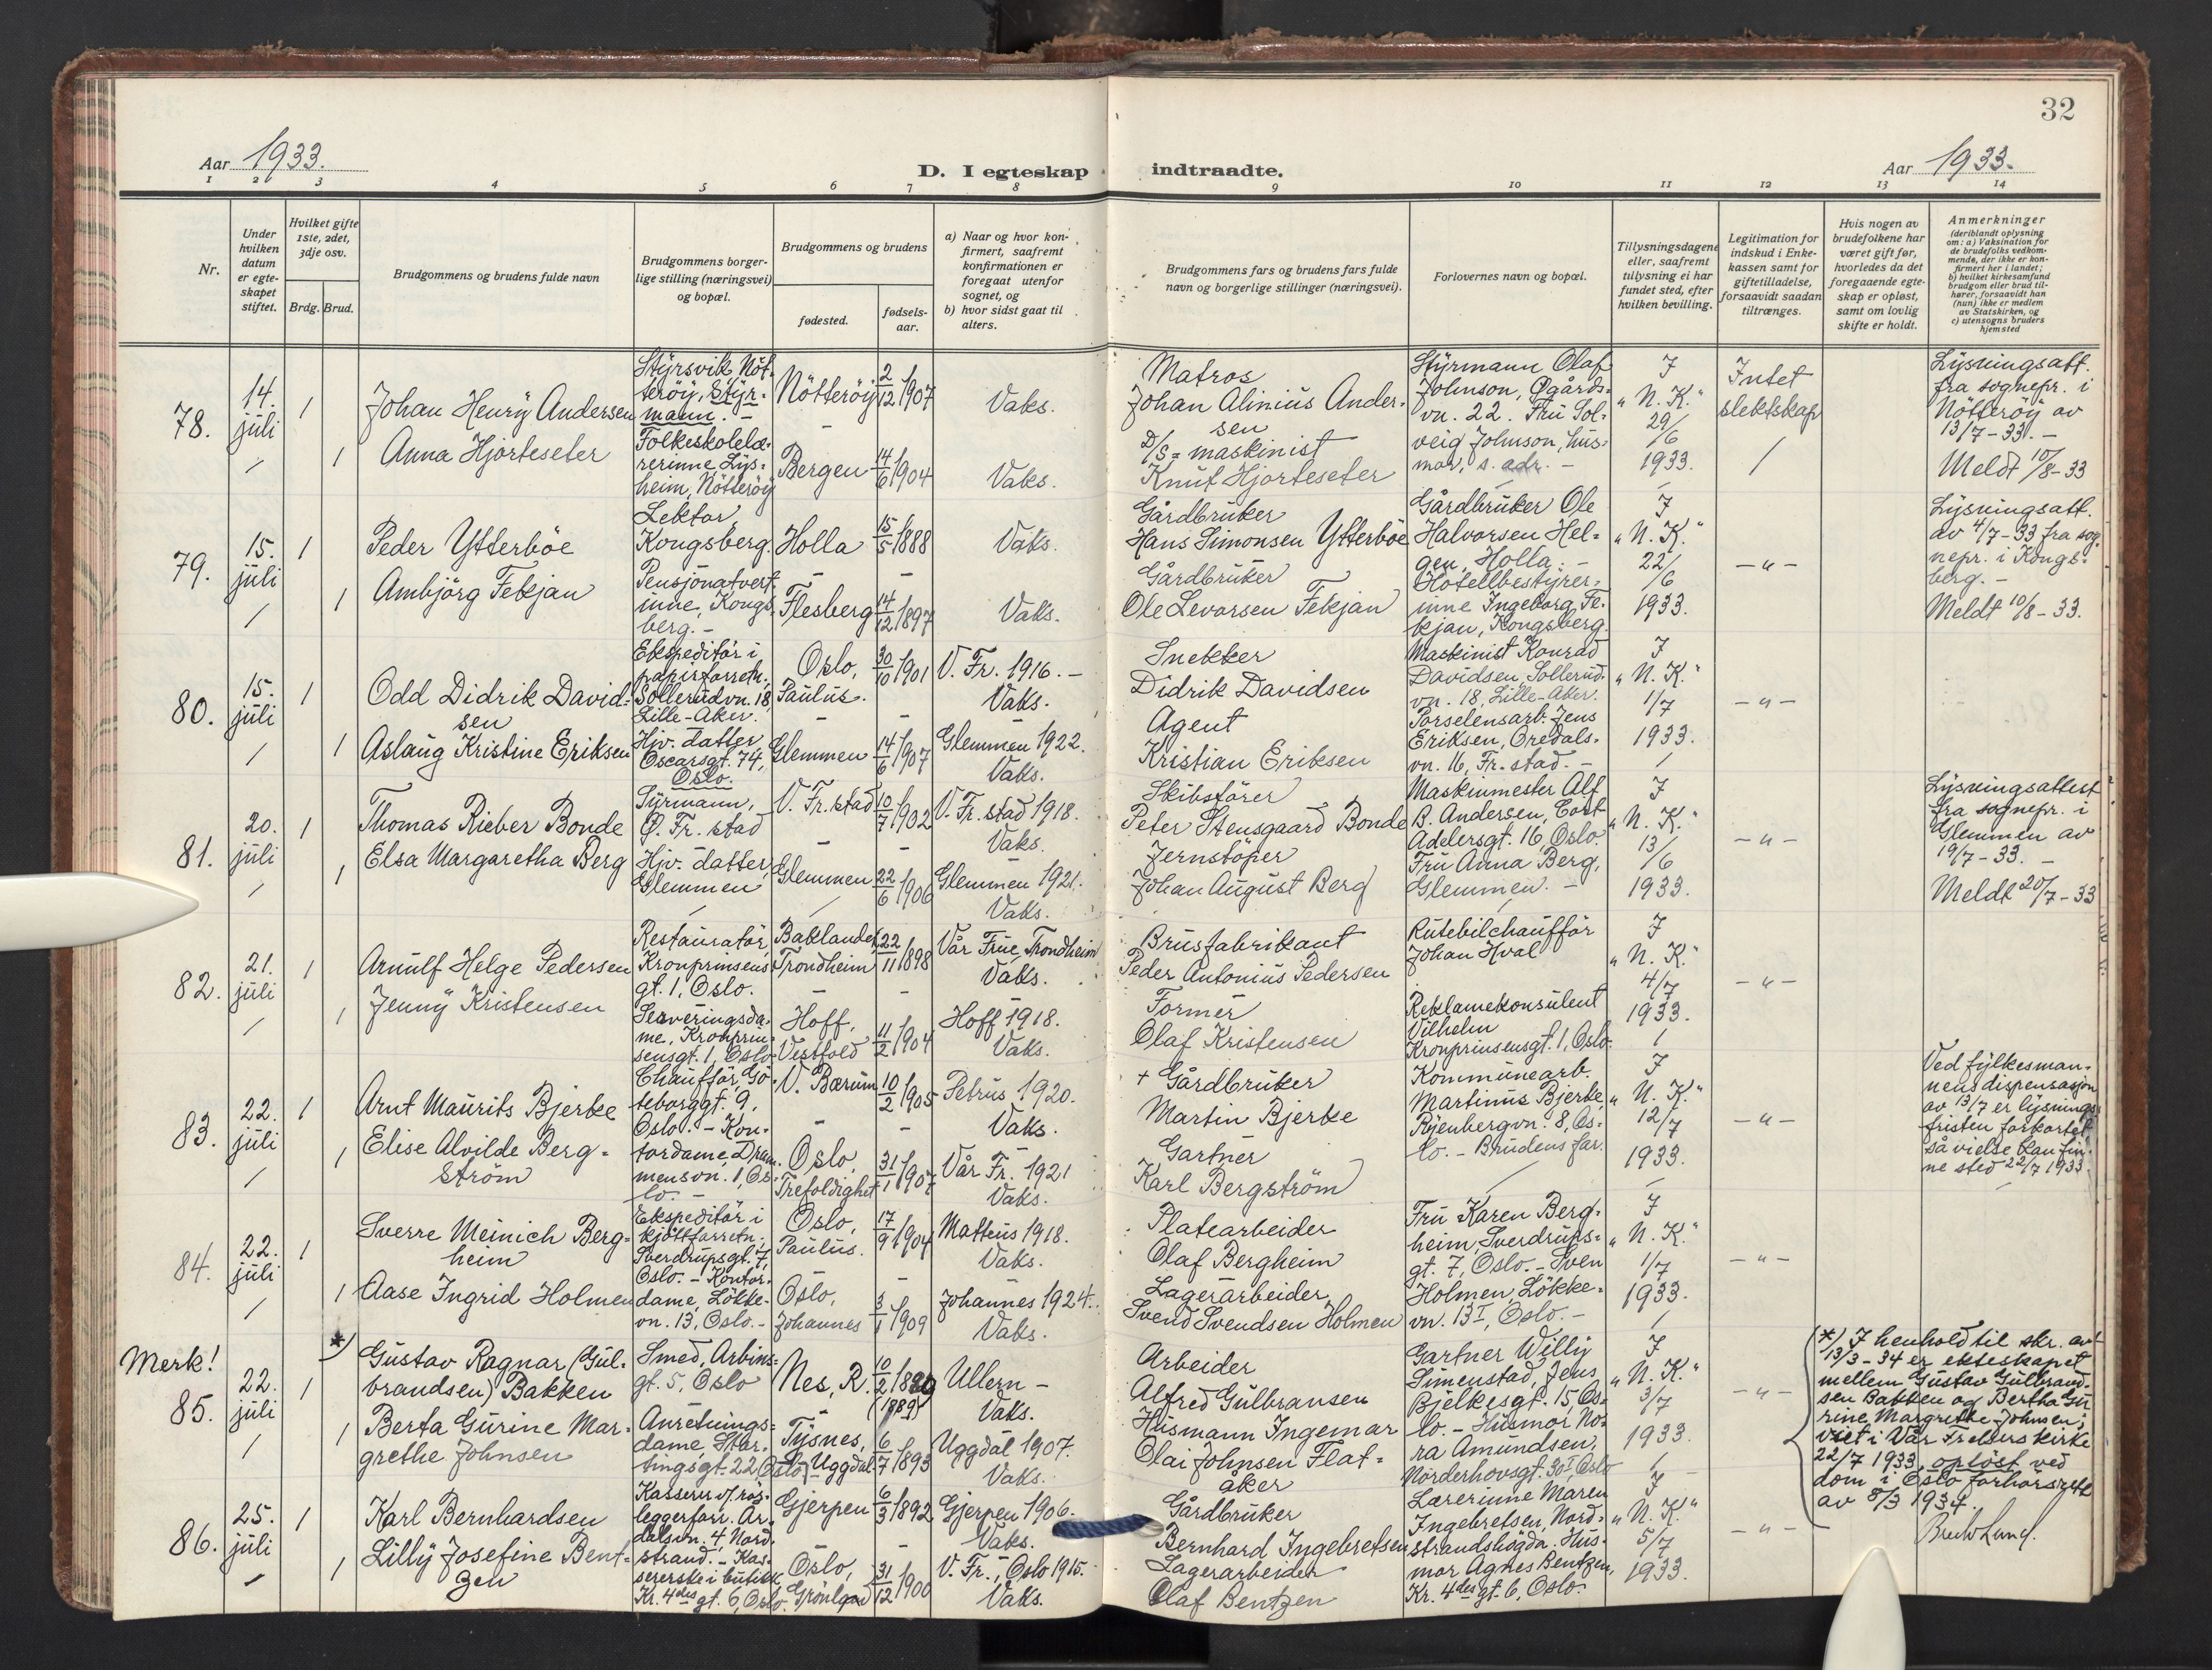 32
Aar 1933.
D. I egteskap indtraadte.
Aar 1933.
1 2 3 4 5 6 7 8 9 10 11 12 13 14
Nr.
Under hvilken datum er egteskapet stiftet.
Hvilket gifte 1ste, 2det, 3dje osv.
Brdg. Brud.
Brudgommens og brudens fulde navn
Brudgommens borgerlige stilling (næringsvei) og bopæl.
Brudgommens og brudens
fødested.
fødselsaar.
a) Naar og hvor konfirmert, saafremt konfirmationen er foregaat utenfor sognet, og
b) hvor sidst gaat til alters.
Brudgommens fars og brudens fars fulde navn og borgerlige stillinger (næringsvei).
Forlovernes navn og bopæl.
Tillysningsdagene eller, saafremt tillysning ei har fundet sted, efter hvilken bevilling.
Legitimation for indskud i Enkekassen samt for giftetilladelse, forsaavidt saadan tiltrænges.
Hvis nogen av brudefolkene har været gift før, hvorledes da det foregaaende egteskap er opløst, samt om lovlig skifte er holdt.
Anmerkninger (deriblandt oplysning om: a) Vaksination for de brudefolks vedkommende, der ikke er konfirmert her i landet; b) hvilket kirkesamfund brudgom eller brud tilhører, forsaavidt han (hun) ikke er medlem av Statskirken, og c) utensogns bruders hjemsted
78. 14. juli 1
Johan Henry Andersen
Styrsvik Nöt-
teröy, Styr-
mann. -
Nötteröy 2/12 1907
Vaks.
Matros
Johan Alinius Ander-
sen
Styrmann Olaf
Johnson, Øgårds-
vn. 22. Fru Sol-
veig Johnson, hus-
mor, s. adr. -
I
"N. K."
29/6
1933.
Intet
slektskap
Lysningsatt.
fra sognepr. i
Nötteröy av
13/7-33. -
Meldt 10/8-33
1 Anna Hjorteseter
Folkeskolelæ-
rerinne Lys-
heim, Nötteröy
Bergen 14/6 1904
Vaks.
D/S = maskinist
Knut Hjorteseter
79. 15. juli 1
Peder Ytterböe
Lektor,
Kongsberg.
Holla 15/5 1888
Vaks.
Gårdbruker
Hans Simonsen Ytterböe
Gårdbruker Ole
Halvorsen Hel-
gen, Holla. -
Hotellbestyrer-
inne Ingeborg Fe-
kjan, Kongsberg.
I
"N. K."
22/6
1933.
- " -
Lysningsatt.
av 4/7-33 fra sog-
nepr. i Kongs-
berg. -
Meldt 10/8-33.
1 Ambjörg Fekjan
Pensjonatvert-
inne, Kongs-
berg. -
Flesberg 14/12 1897
Vaks.
Gårdbruker
Ole Levorsen Fekjan
80. 15. juli 1
Odd Didrik David-
sen
Ekspeditör i
papirforretn.,
Sollerudvn. 18,
Lille-Aker.
Oslo,
Paulus.
30/10 1901
V. Fr. 1916. -
Vaks.
Snekker
Didrik Davidsen
Maskinist Konrad
Davidsen, Sollerud-
vn. 18, Lille-Aker.
Porselensarb. Jens
Eriksen, Oredals-
vn. 16, Fr.stad. -
I
"N. K."
1/7
1933.
- " -
1 Aslaug Kristine Eriksen
Hjv. datter
Oscarsgt. 74,
Oslo.
Glemmen 14/6 1907
Glemmen 1922.
Vaks.
Agent
Kristian Eriksen
81. 20. juli 1
Thomas Rieber Bonde
Syrmann,
Ø. Fr. stad
V. Fr.stad 10/7 1902
V. Fr. stad 1918.
Vaks.
Skibsförer
Peter Stensgaard Bonde
Maskinmester Alf
B. Andersen, Cort
Adelersgt. 16, Oslo.
Fru Anna Berg,
Glemmen. -
I
"N. K."
13/6
1933.
- " -
Lysningsattest
fra sognepr. i
Glemmen av
19/7-33. -
Meldt 20/7-33
1 Elsa Margaretha Berg
Hjv. datter,
Glemmen
Glemmen 22/6 1906
Glemmen 1921.
Vaks.
Jernstöper
Johan August Berg
82. 21. juli 1
Arnulf Helge Pedersen
Restauratör,
Kronprinsens-
gt. 1, Oslo.
Baklandet,
Trondheim
22/11 1898
Vår Frue, Trondheim
Vaks.
Brusfabrikant
Peder Antonius Pedersen
Rutebilchaufför
Johan Hval
Reklamekonsulent
Vilhelm
Kronprinsensgt. 1, Oslo.
I
"N. K."
4/7
1933.
- " -
1 Jenny Kristensen
Serveringsda-
me, Kronprin-
sensgt. 1, Oslo
Hoff,
Vestfold
11/2 1904
Hoff 1918.
Vaks.
Former
Olaf Kristensen
83. 22. juli 1
Arnt Maurits Bjerke
Chaufför, Gö-
teborggt. 9,
Oslo. - Kon-
V. Bærum 10/2 1905
Petrus 1920.
Vaks.
+ Gårdbruker
Martin Bjerke
Kommunearb.
Martinus Bjerke,
Ryenbergvn. 8, Os-
lo. - Brudens far.
I
"N. K."
12/7
1933.
- " -
Ved fylkesman-
nens dispensasjon
av 13/7 er lysnings-
fristen forkortet
så vielse kan fin-
ne sted 22/7 1933.
1 Elise Alvilde Berg-
ström
tordame, Dram-
mensvn. 1, Os-
lo. -
Oslo,
Trefoldighet
31/1 1907
Vår Fr. 1921
Vaks.
Gartner
Karl Bergström
84. 22. juli 1
Sverre Meinich Berg-
heim
Ekspeditör i
kjöttforretn.,
Sverdrupsgt. 7,
Oslo. - Kontor-
Oslo,
Paulus.
17/9 1904
Matteus 1918.
Vaks.
Platearbeider
Olaf Bergheim
Fru Karen Berg-
heim, Sverdrups-
gt. 7, Oslo. - Sven
Holmen, Lökke-
vn. 13 I, Oslo. -
I
"N. K."
1/7
1933.
- " -
1 Aase Ingrid Holmen
dame, Lökke-
vn. 13, Oslo. -
Oslo,
Johannes
3/1 1909
Johannes 1924.
Vaks.
Lagerarbeider
Svend Svendsen Holmen
Merk!
85. 22. juli 1 *)
Gustav Ragnar (Gul-
brandsen) Bakken
Smed, Arbins-
gt. 5, Oslo
Nes, R. 10/2 1889
(1889)
Ullern -
Vaks.
Arbeider
Alfred Gulbransen
Gartner Willy
Simenstad, Jens
Bjelkesgt. 15, Os-
lo. - Husmor No-
ra Amundsen,
Norderhovsgt. 30 I Oslo
I
"N. K."
3/7
1933.
- " -
*) I henhold til skr. av
13/3-34 er ekteskapet
mellem Gustav Gulbrand-
sen Bakken og Bertha Gu-
rine Margrethe Johnsen,
viet i Vår Frelsers kirke
22/7 1933, oplöst ved
dom i Oslo forhörsrett
av 8/3 1934.
1 Berta Gurine Mar-
grethe Johnsen
Anretnings-
dame, Stor-
tingsgt. 22, Oslo
Tysnes,
Uggdal
6/7 1893
Uggdal 1907.
Vaks.
Husmann Ingemar
Olai Johnsen Flat-
åker
86. 25. juli 1
Karl Bernhardsen
Kasserer v/ rör-
leggerforr. Ar-
dalsvn. 4, Nord-
strand. - Kas-
Gjerpen 6/3 1892
Gjerpen 1906.
Vaks.
Gårdbruker
Bernhard Ingebretsen
Lærerinne Maren
Ingebretsen, Nord-
strandshögda. Hus-
mor Agnes Bentzen,
Kr. 4des gt. 6, Oslo.
I
"N. K."
5/7
1933.
- " -
1 Lilly Josefine Bent-
zen
sererske i butikk
Kr. 4des gt. 6, Oslo.
Oslo,
Grönland
31/12 1900
V. Fr., Oslo 1915.
Vaks.
Lagerarbeider
Olaf Bentzen